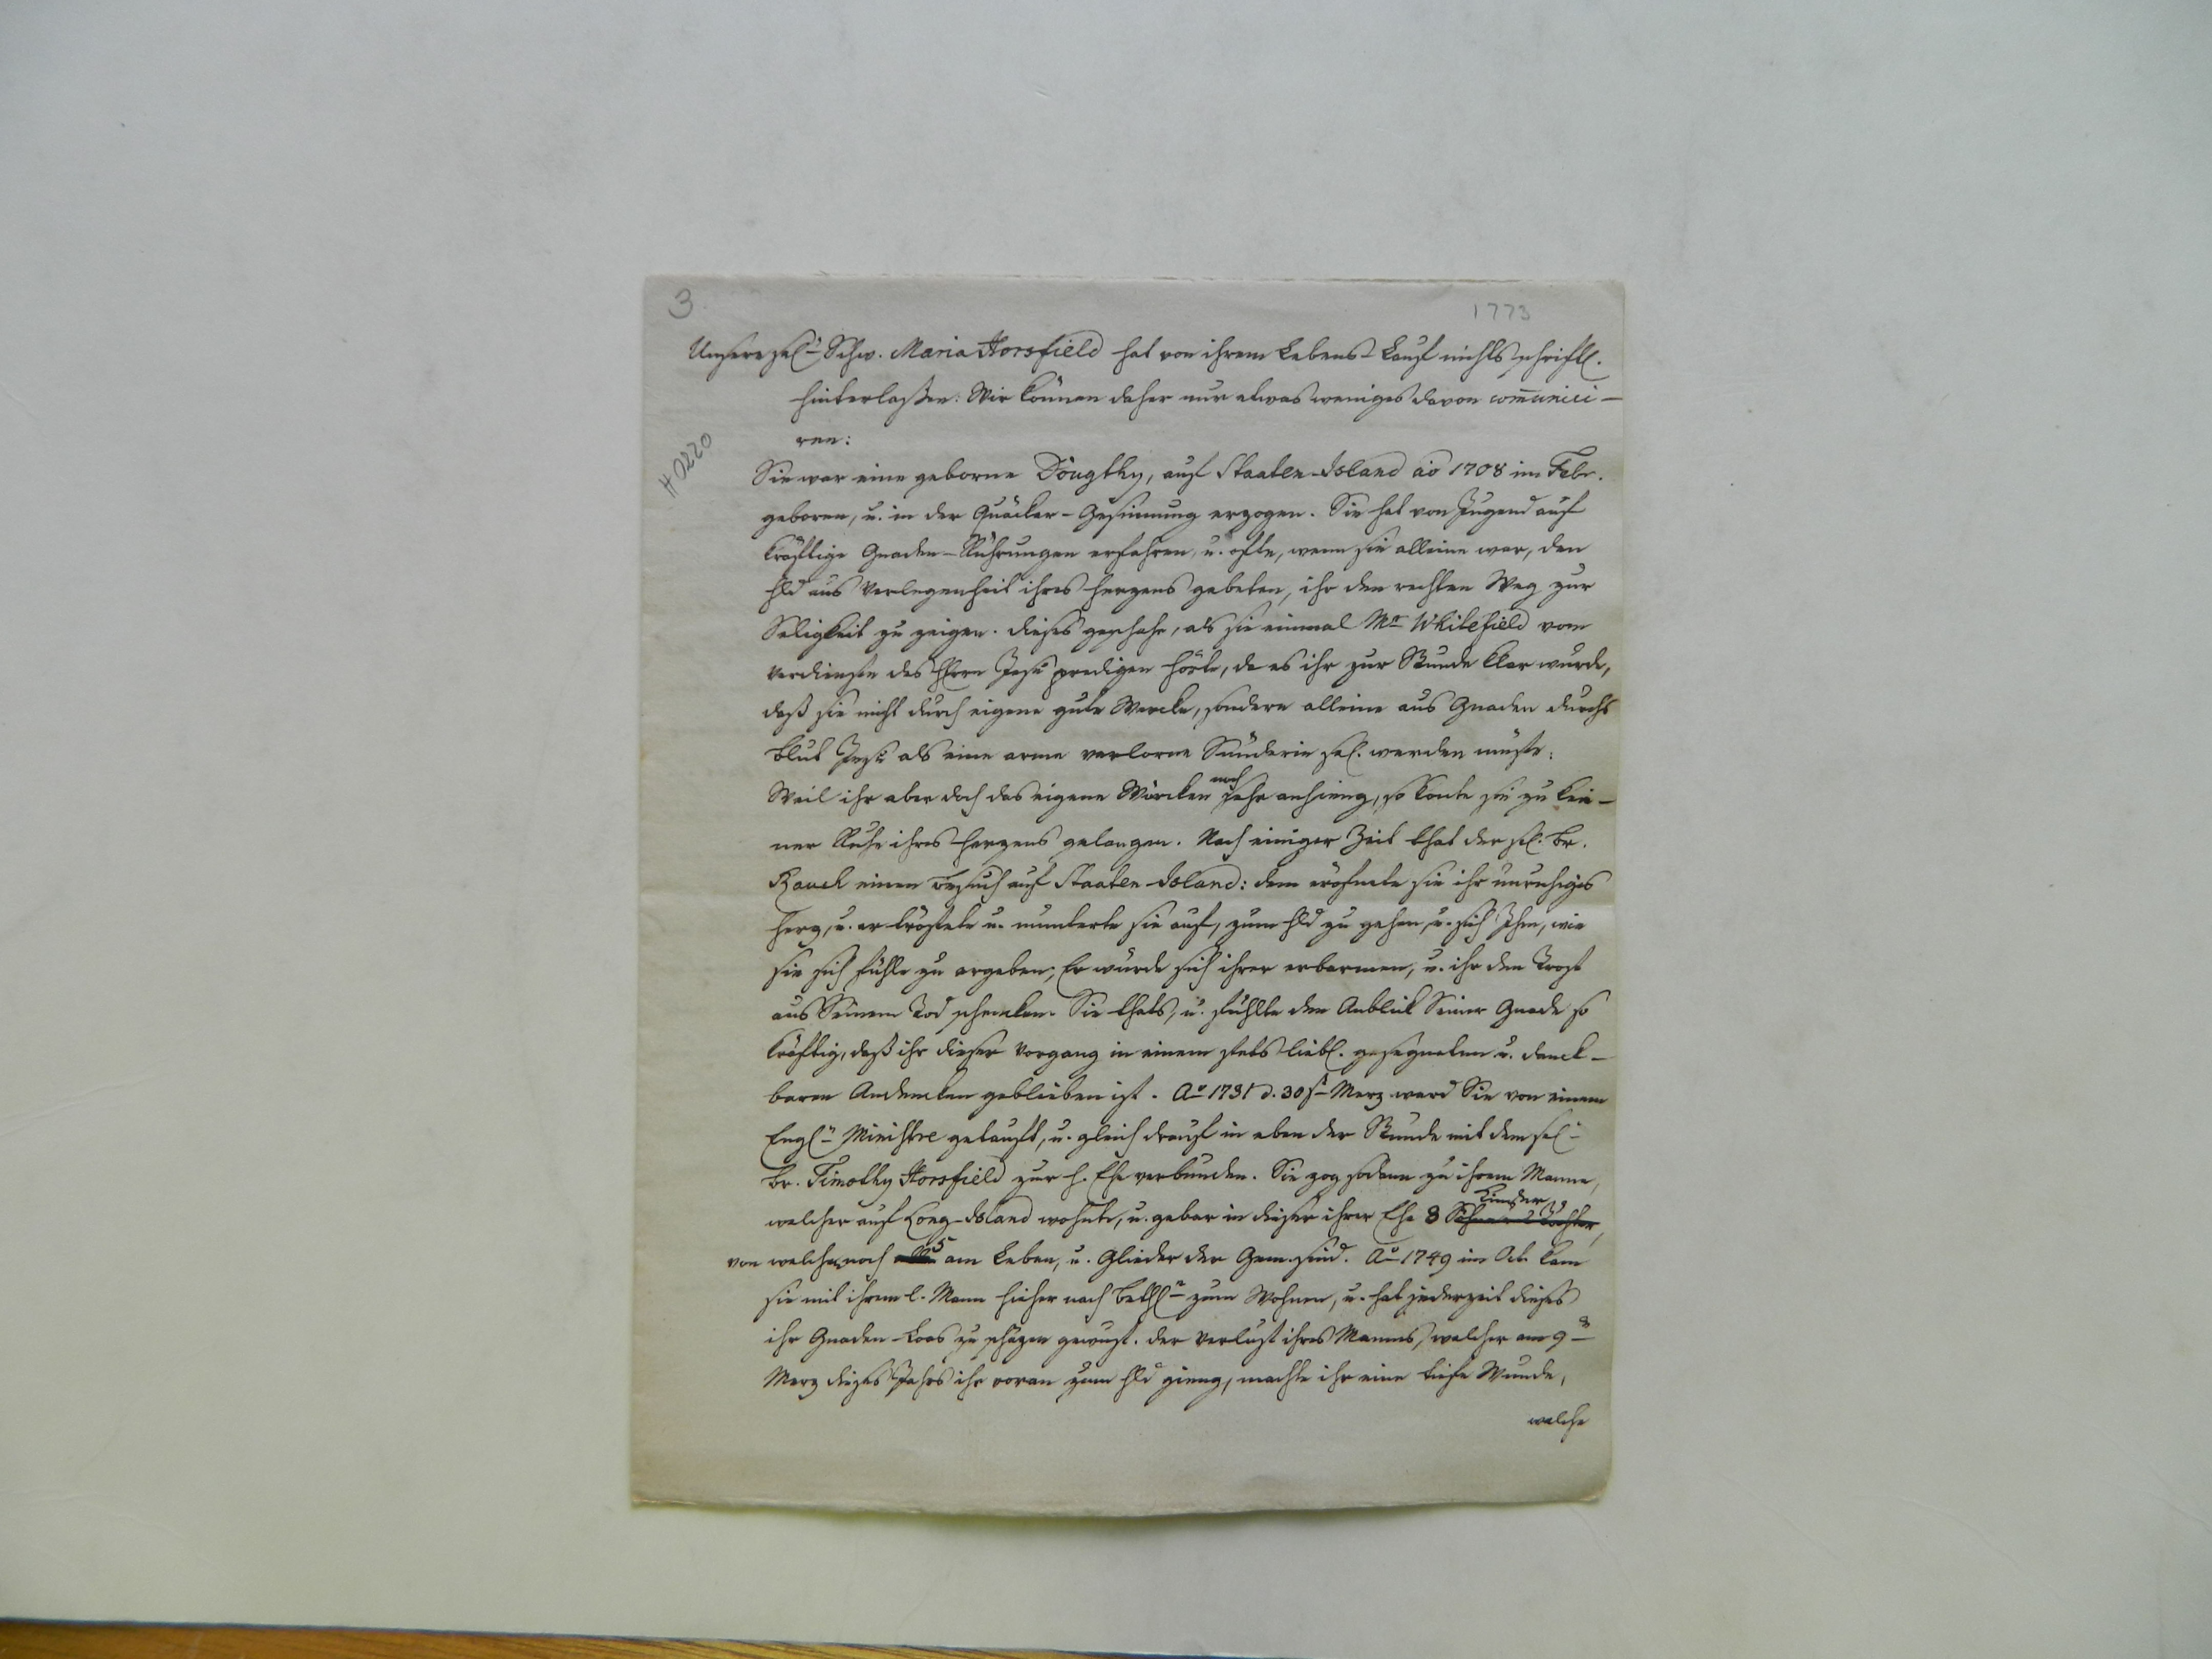 3.
1773
H 0220
Unsere sel. Schw. Maria Horsfield hat von ihrem Lebens-Lauf nichts schriftl.
hinterlaßen: Wir können daher nur etwas weniges davon com̅unici-
ren:
Sie war eine geborne Doughty, auf Staaten-Island ao 1708 im Febr.
geboren, u. in der Quäcker-Gesinnung erzogen. Sie hat von Jugend auf
kräftige Gnaden-Rührungen erfahren, u. ofte, wenn sie alleine war, den
Hld aus Verlegenheit ihres Herzens gebeten, ihr den rechten Weg zur
Seligkeit zu zeigen. Dieses geschahe, als sie einmal Mr Whitefield vom
Verdiensten des Hrrn Jesu predigen hörte, da es ihr zur Stunde klar wurde,
daß sie nicht durch eigene gute Wercke, sondern alleine aus Gnaden durchs
Blut Jesu als eine arme verlorne Sünderin sel. werden müste.
Weil ihr aber doch das eigene Würcken noch sehr anhieng, so konte sie zu kei-
ner Ruhe ihres Herzens gelangen. Nach einiger Zeit that der sel. Br.
Rauch einen Besuch auf Staaten-Island: dem eröfnete sie ihr unruhiges
Herz, u. er tröstete u. munterte sie auf, zum Hld zu gehen, u. sich Ihm, wie
sie sich fühle zu ergeben; Er würde sich ihrer erbarmen, u. ihr den Trost
aus Seinem Tod schencken. Sie thats, u. fühlte den Anblick Seiner Gnade so
kräftig, daß ihr dieser Vorgang in einem stets liebl. gesegneten u. danck-
baren Andencken geblieben ist. Ao 1731 d. 30st Merz ward Sie von einem
Engln Ministre getauft, u. gleich drauf in eben der Stunde mit dem sel.
Br. Timothy Horsfield zur h. Ehe verbunden. Sie zog sodann zu ihrem Manne,
welcher auf Long-Island wohnte, u. gebar in dieser ihrer Ehe 8 Kinder,
von welchen noch 5 am Leben, u. Glieder der Gem. sind. Ao 1749 im Oct. kam
sie mit ihrem l. Mann hieher nach Bethln zum Wohnen, u. hat jederzeit dieses
ihr Gnaden-Loos zu schäzen gewust. Der Verlust ihres Mannes, welcher am 9n
Merz dieses Jahrs ihr voran zum Hld gieng, machte ihr eine tiefe Wunde,
welche